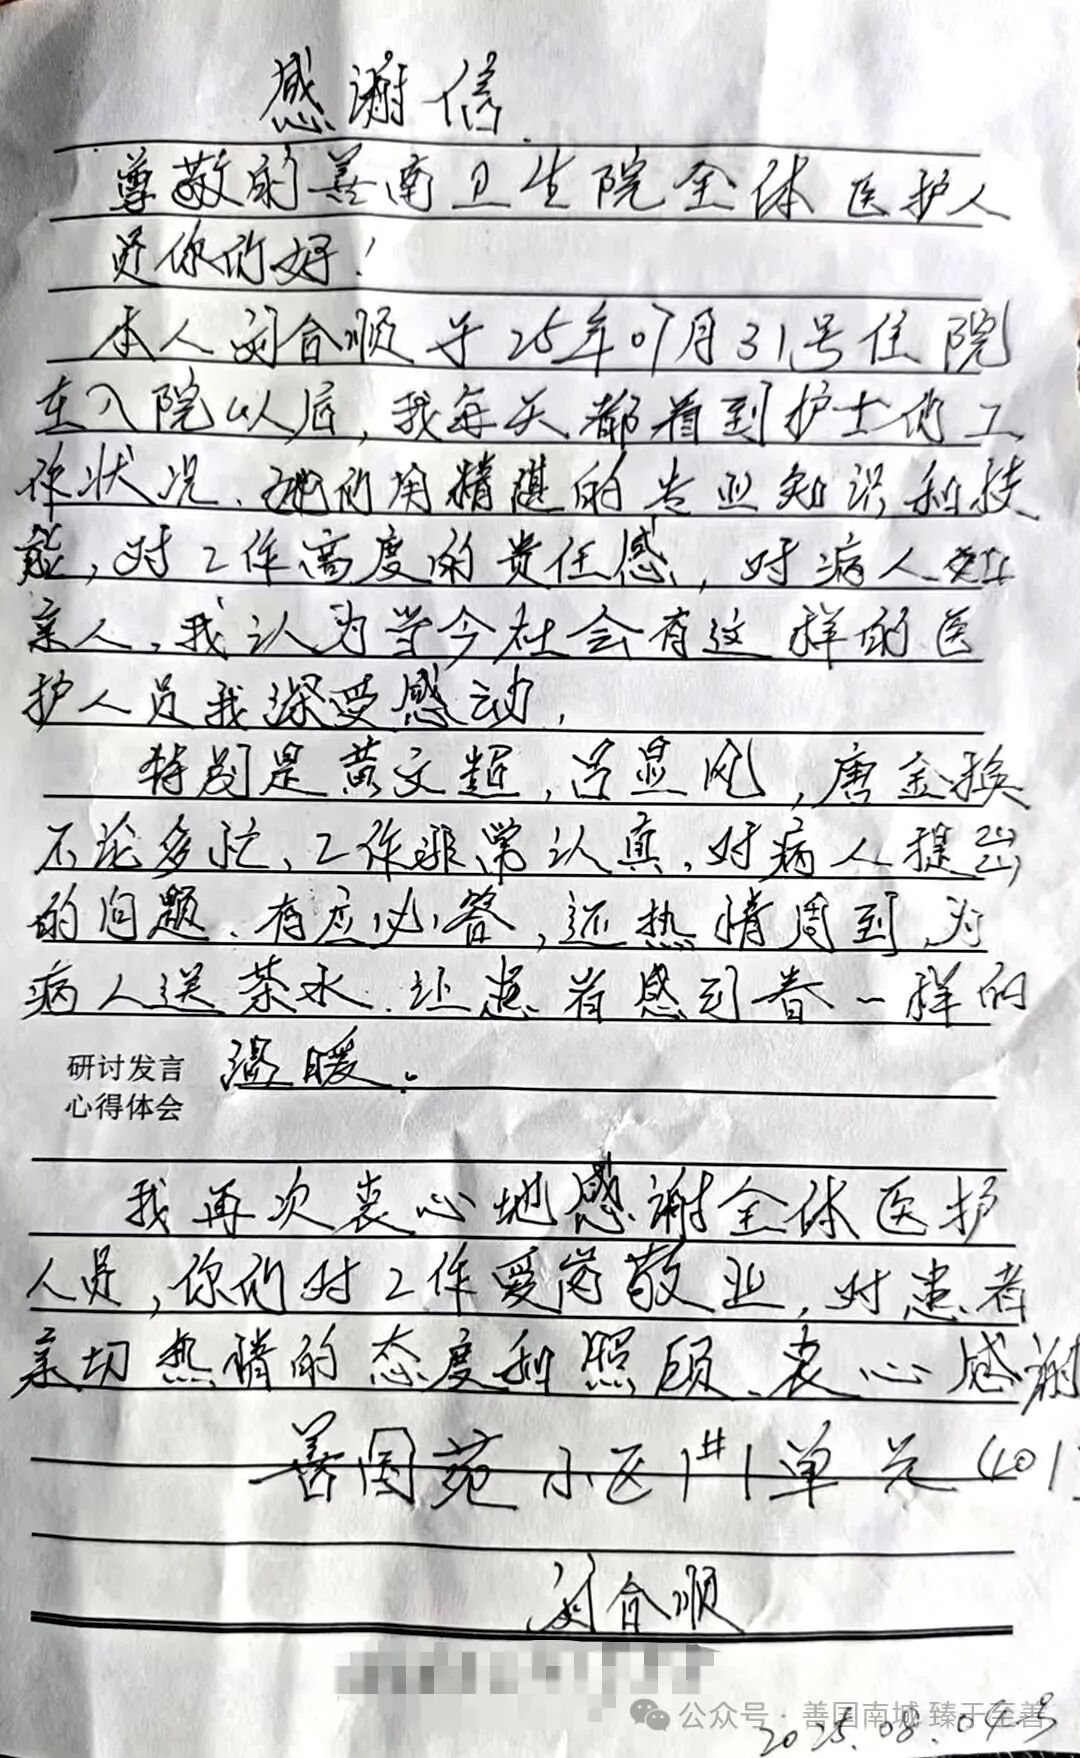 感谢信
尊敬的善南卫生院全体医护人
员你们好！
本人刘合顺于25年07月31号住院
在入院以后，我每天都看到护士们工
作状况、她们用精湛的专业知识和技
能，对工作高度的责任感，对病人如
亲人。我认为当今社会有这样的医
护人员我深受感动，
特别是黄文超，吕显风，唐金换
不论多忙、工作非常认真，对病人提出
的问题、有应必答，还热情周到，为
病人送茶水．让患者感到春一样的
研讨发言 温暖。
心得体会
我再次衷心地感谢全体医护
人员，你们对工作爱岗敬业，对患者
亲切热情的态度和照顾、衷心感谢
善国苑小区1#1单元401
刘合顺
公众号·善国南城 臻于至善
2025.08.04号